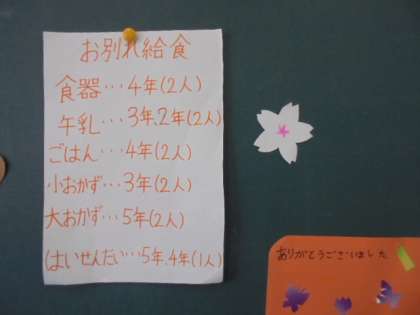 お別れ給食
食器…4年(2人)
牛乳…3年、2年(2人)
ごはん…4年(2人)
小おかず…3年(2人)
大おかず…5年(2人)
はいぜんだい…5年、4年(1人)
ありがとうございました